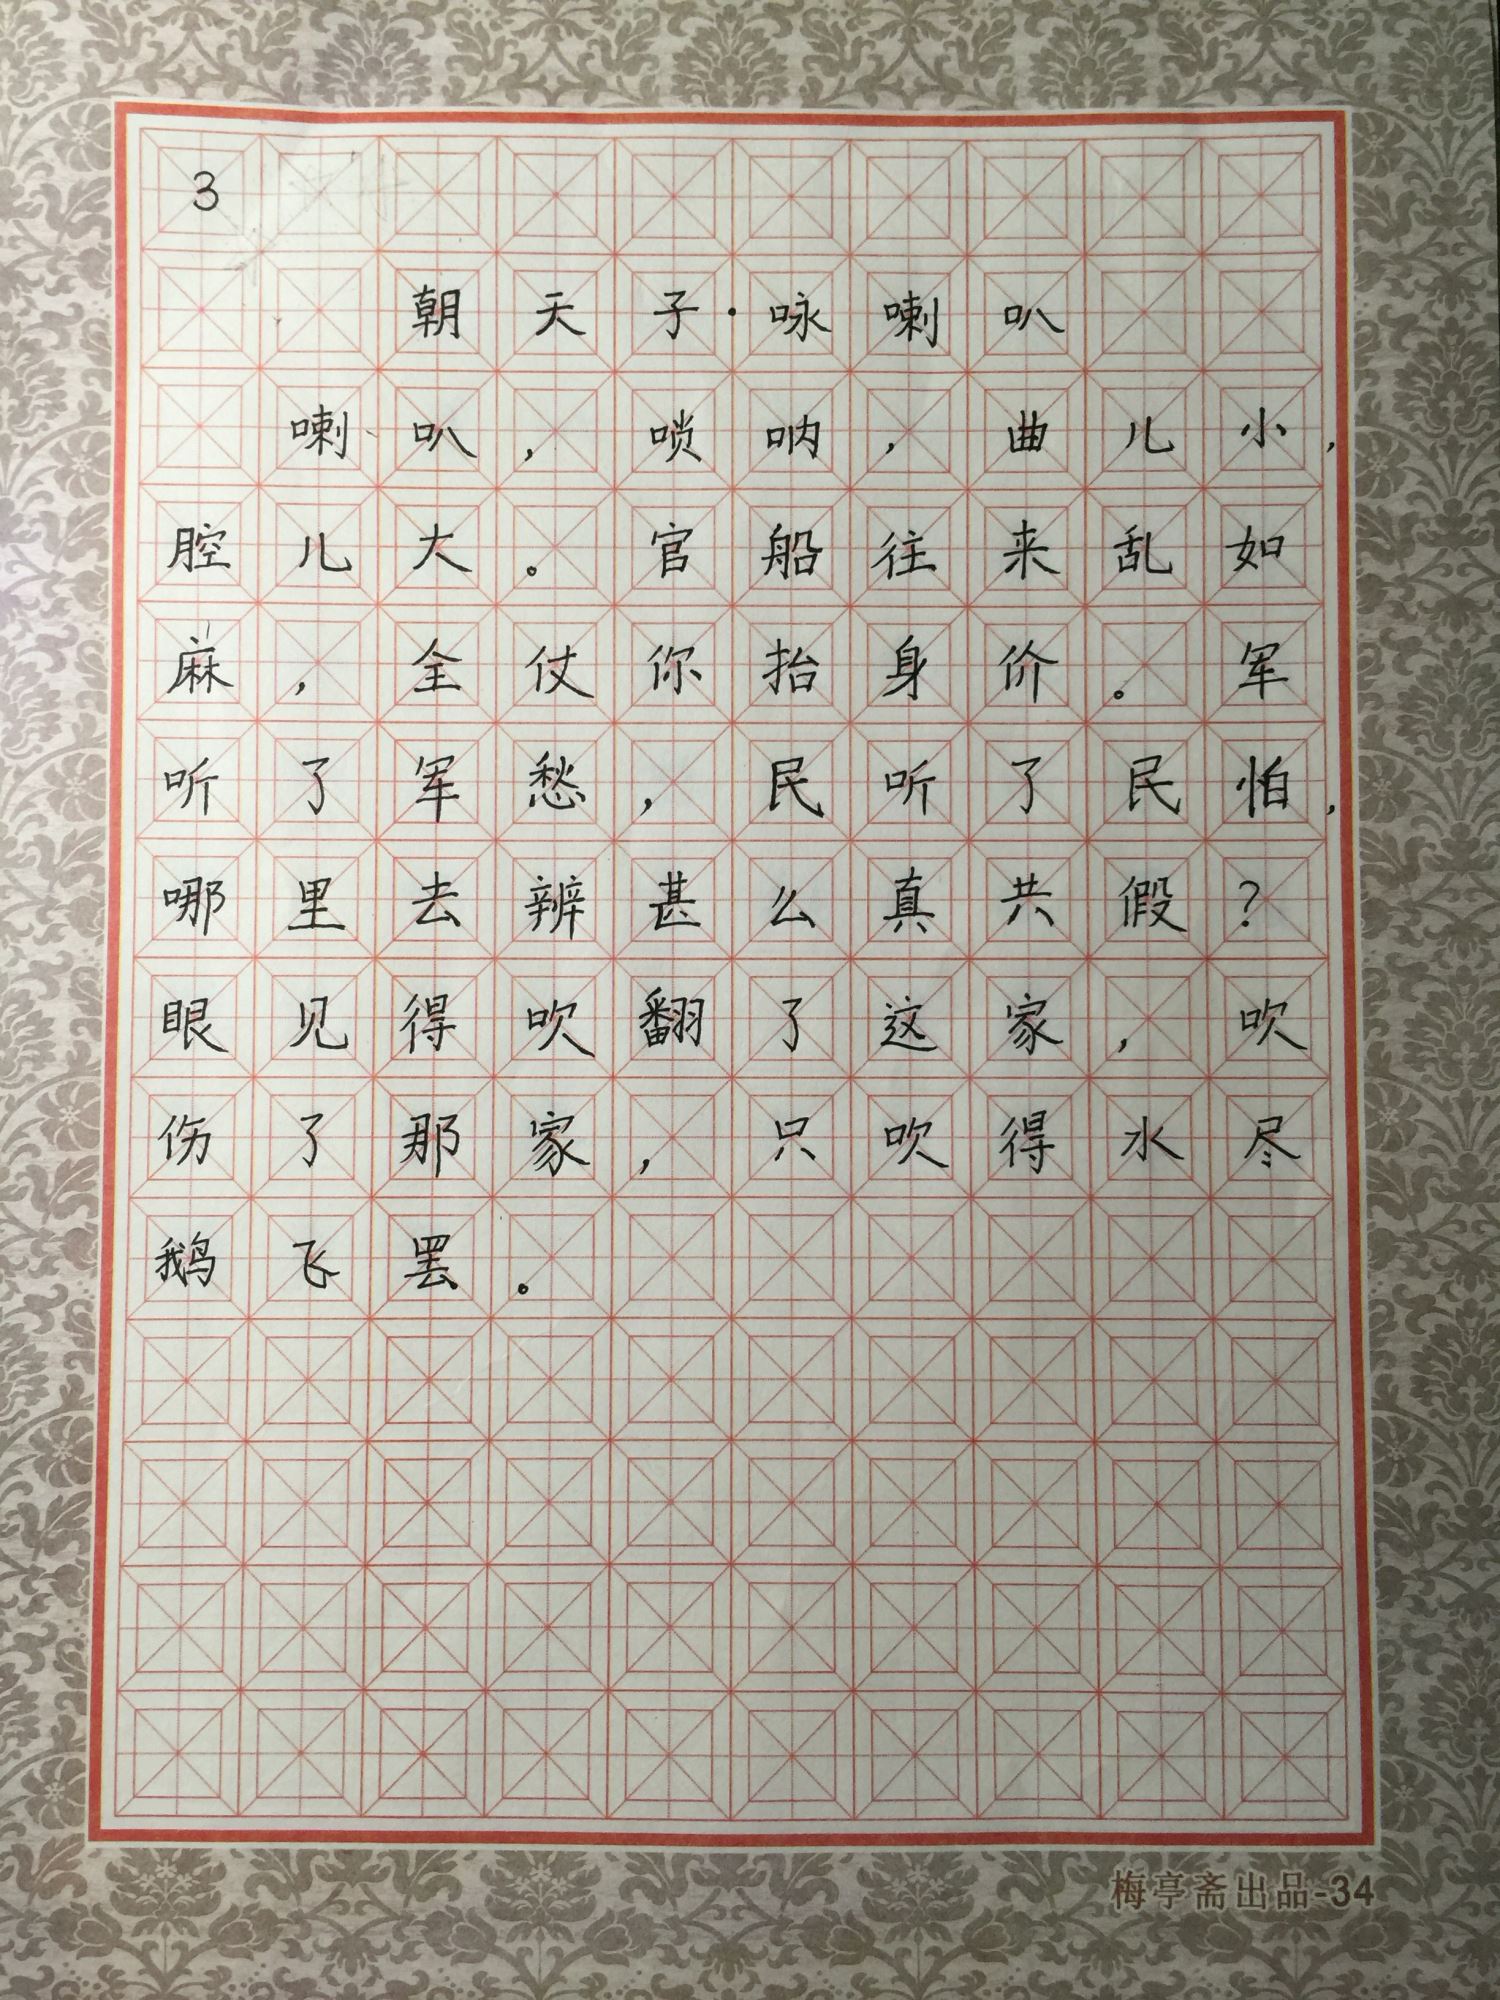 3
朝天子·咏喇叭
喇叭，唢呐，曲儿小，
腔儿大。官船往来乱如
麻，全仗你抬身价。军
听了军愁，民听了民怕，
哪里去辨甚么真共假？
眼见得吹翻了这家，吹
伤了那家，只吹得水尽
鹅飞罢。
梅亭斋出品-34